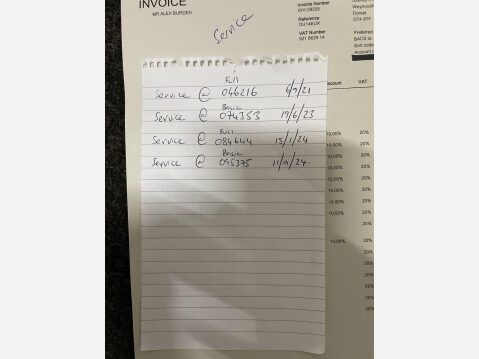 INVOICE
MR ALEX BURDEN
Service
Invoice Number
Reference
OU14EUX
VAT Number
921 8629 14
Weymouth
Dorset
DT4 9TF
Preferred
BACS to
Sort code
Account
Full
Service @ 046216 6/9/21
Basic
Service @ 074353 19/6/23
Full
Service @ 084644 15/1/24
Basic
Service @ 095375 11/9/24.
VAT
10.00% 20%
20%
10.00% 20%
10.00% 20%
10.00% 20%
10.00% 20%
10.00% 20%
20%
20%
10.00% 20%
20%
20%
20%
20%
20%
20%